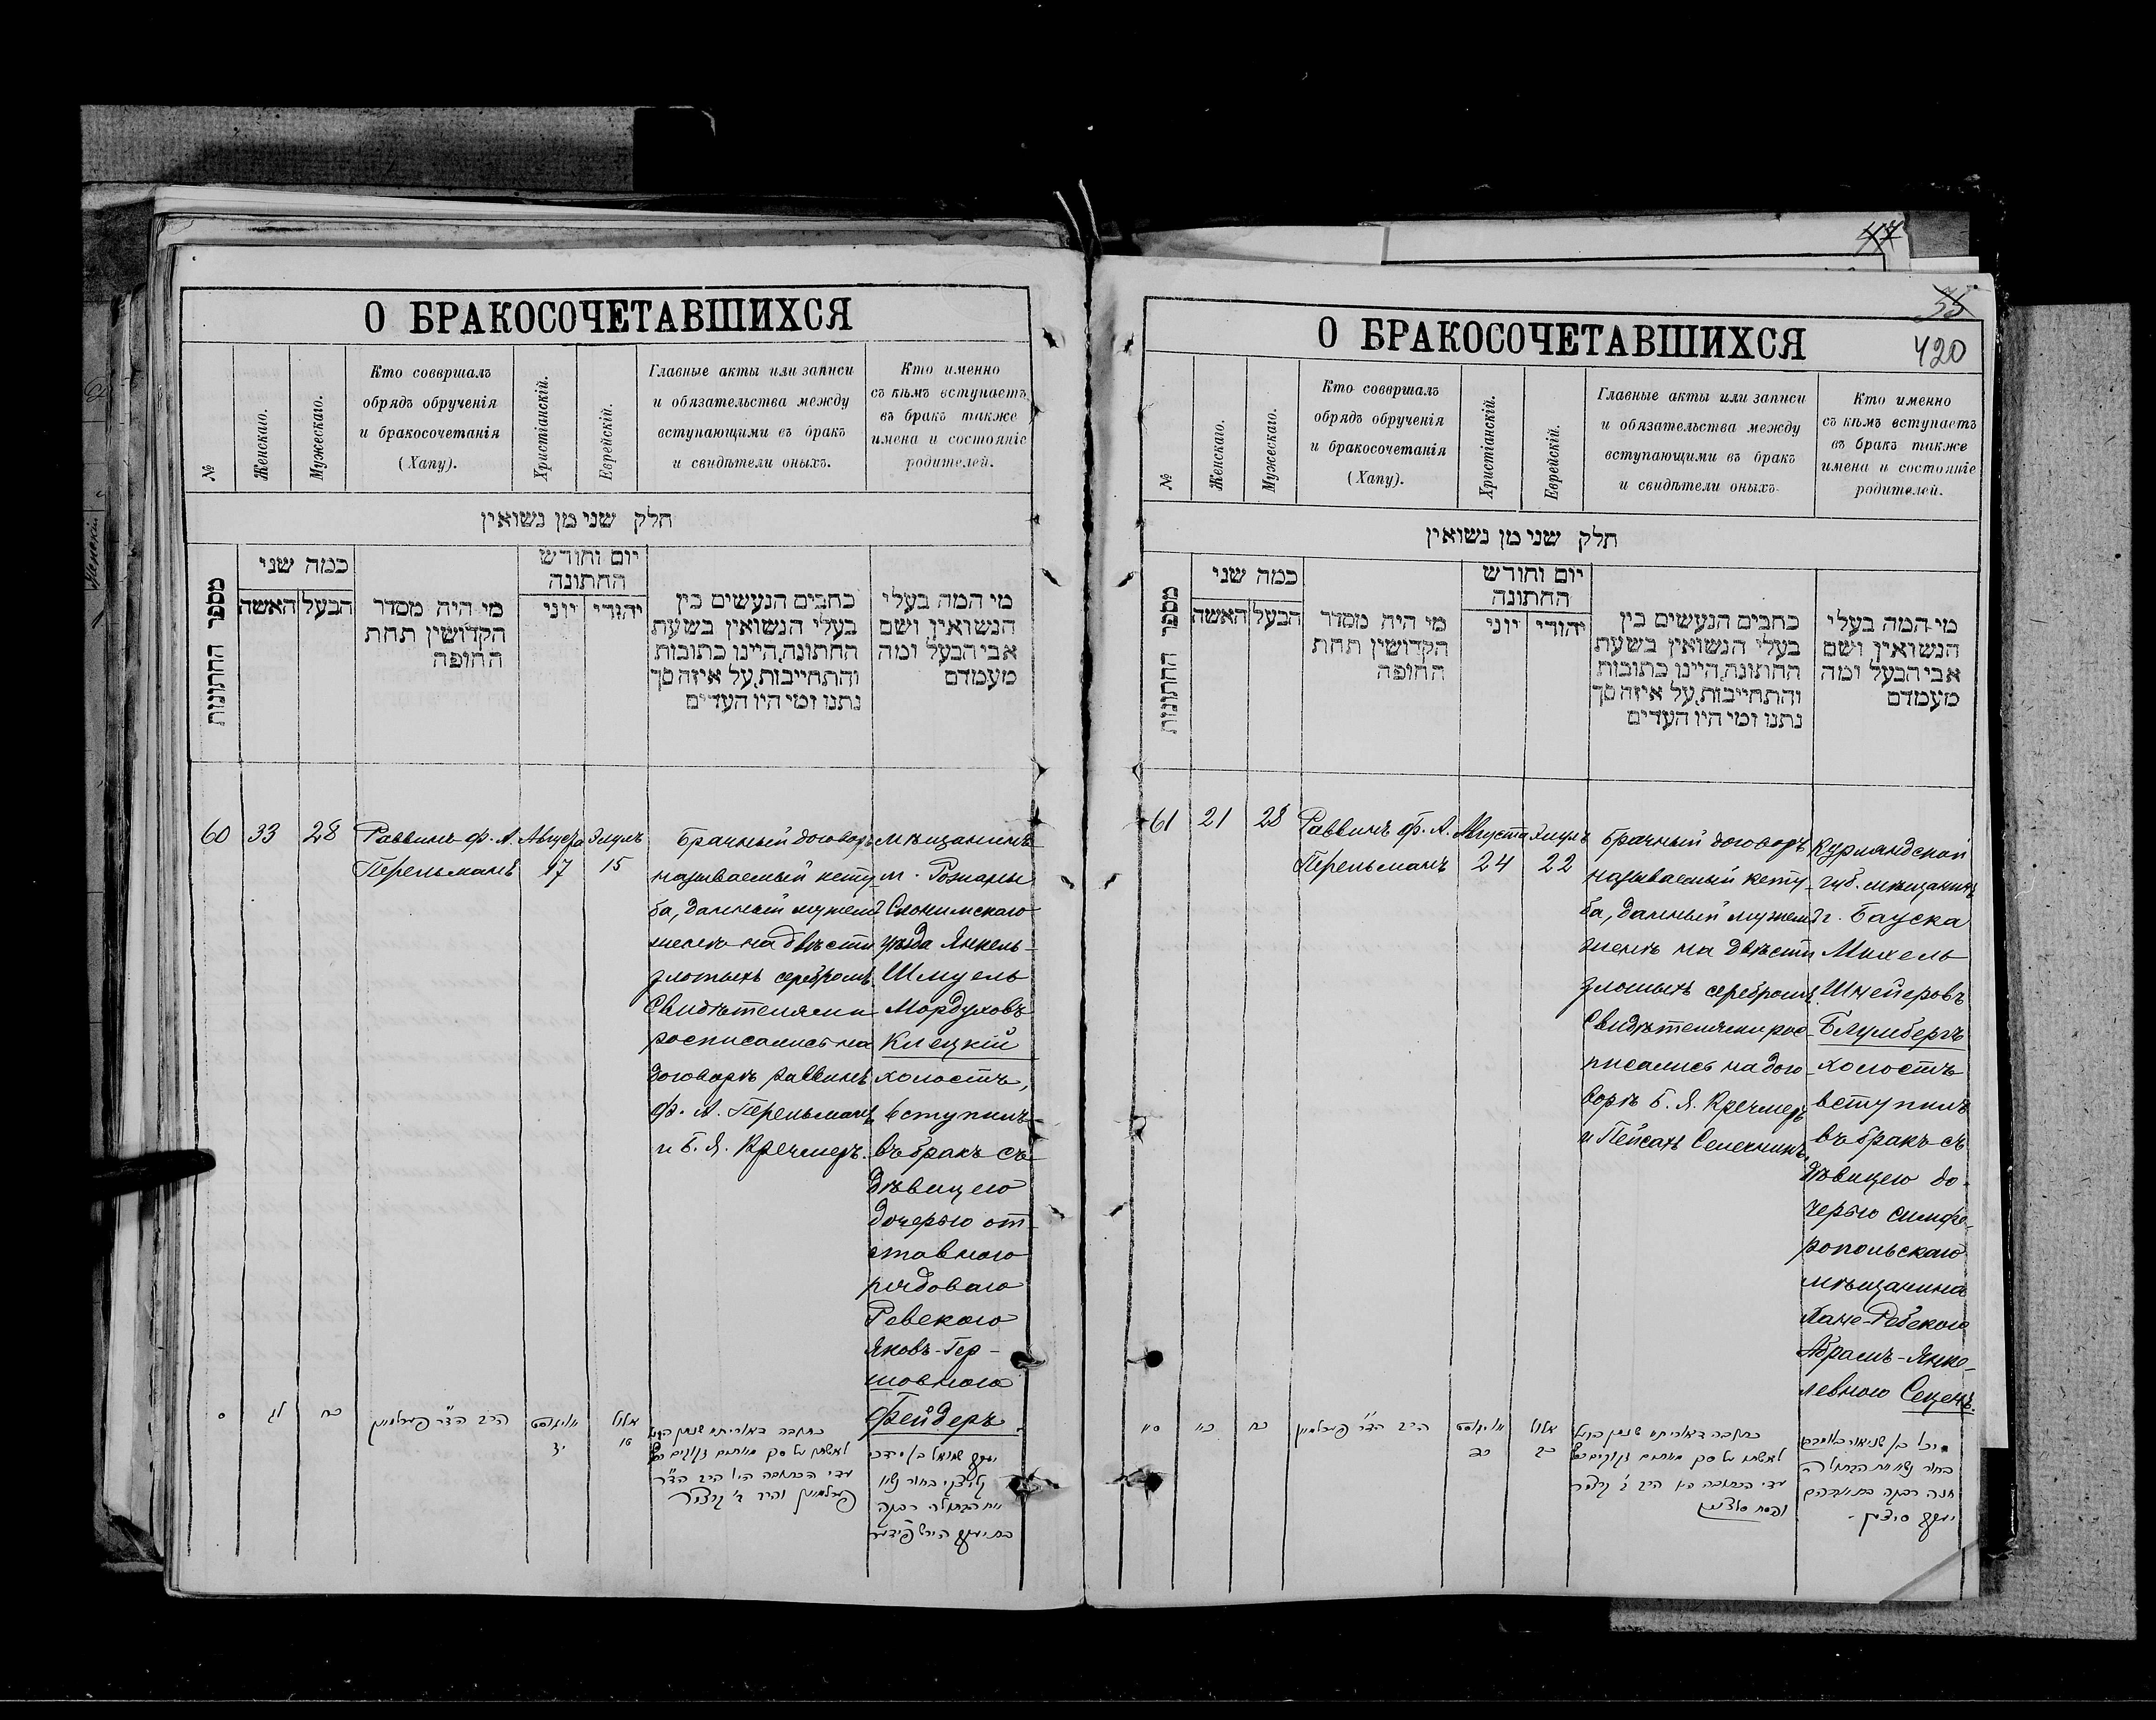 О БРАКОСОЧЕТАВШИХСЯ
№
Женскаго.
Мужескаго.
Кто совершалъ
обрядъ обрученія
и бракосочетанія
(Хапу).
Христіанскій.
Еврейскій.
Главные акты или записи
и обязательства между
вступающими въ бракъ
и свидѣтели оныхъ.
Кто именно
съ кѣмъ вступаетъ
въ бракъ также
имена и состояніе
родителей.
חלק שני מן נשואין
מספר החתונות
כמה שני
האשה
הבעל
מי היה מסדר
הקדושין תחת
החופה
יום וחודש
החתונה
יוני
יהודי
כתבים הנעשים בין
בעלי הנשואין בשעת
החתונה, היינו כתובות
והתחייבות, על איזה סך
נתנו ומי היו העדים
מי המה בעלי
הנשואין ושם
אבי הבעל ומה
מעמדם
60
33
28
Раввинъ Ф. А.
Перельманъ
Августа
17
Элулъ
15
Брачный договоръ
называемый кету-
ба, данный мужемъ
женѣ на двѣсти
злотыхъ серебромъ.
Свидѣтелями
росписались на
договорѣ раввинъ
Ф. А. Перельманъ
и Б. Я. Кречмеръ.
Мѣщанинъ
м. Рожаны
Слонимскаго
уѣзда Янкель-
Шмуель
Мордуховъ
Клецкій
холостъ,
вступилъ
въ бракъ съ
дѣвицею
дочерью от-
ставного
рядоваго
Ревекою
Яковъ-Гер-
шовною
Фейдеръ.
לג
כח
הרב הד״ר פערלמאן
אויגוסט
יז
אלול
טו
עדי הכתובה היו הרב הד״ר
יעקב שמואל בן מרדכי
קלעצקי בחור נשוי
עם הבתולה רבקה
О БРАКОСОЧЕТАВШИХСЯ
47
35
420
№
Женскаго.
Мужескаго.
Кто совершалъ
обрядъ обрученія
и бракосочетанія
(Хапу).
Христіанскій.
Еврейскій.
Главные акты или записи
и обязательства между
вступающими въ бракъ
и свидѣтели оныхъ.
Кто именно
съ кѣмъ вступаетъ
въ бракъ также
имена и состояніе
родителей.
חלק שני מן נשואין
מספר החתונות
כמה שני
האשה
הבעל
מי היה מסדר
הקדושין תחת
החופה
יום וחודש
החתונה
יוני
יהודי
כתבים הנעשים בין
בעלי הנשואין בשעת
החתונה, היינו כתובות
והתחייבות, על איזה סך
נתנו ומי היו העדים
מי המה בעלי
הנשואין ושם
אבי הבעל ומה
מעמדם
61
21
28
Раввинъ Ф. А.
Перельманъ
Августа
24
Элулъ
22
Брачный договоръ
называемый кету-
ба, данный мужемъ
женѣ на двѣсти
злотыхъ серебромъ.
Свидѣтелями рос-
писались на дого-
ворѣ Б. Я. Кречмеръ
и Пейсахъ
Курляндской
губ. мѣщанинъ
г. Бауска
Михель
Шнееровъ
Блумбергъ
холостъ
вступилъ
въ бракъ съ
дѣвицею до-
черью симфе-
ропольскаго
мѣщанина
Хане-Ребекою
Абрамъ-Янке-
левною Сеценъ.
כח
הרב הד״ר פערלמאן
אויגוסט
כד
אלול
כב
חנה רבקה בת אברהם